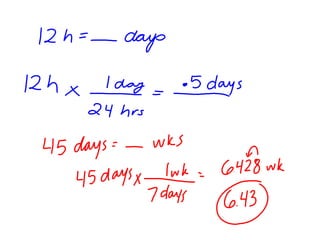 12 h = __ days
12 h x 1 day / 24 hrs = .5 days
45 days = __ wks
45 days x 1 wk / 7 days = 6428 wk
6.43